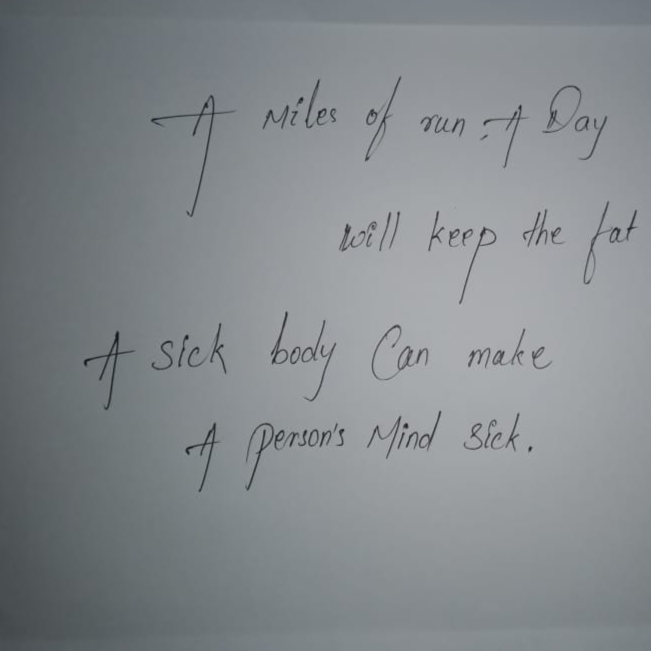 A Miles of run, A Day
will keep the fat
A sick body Can make
A person's Mind sick.